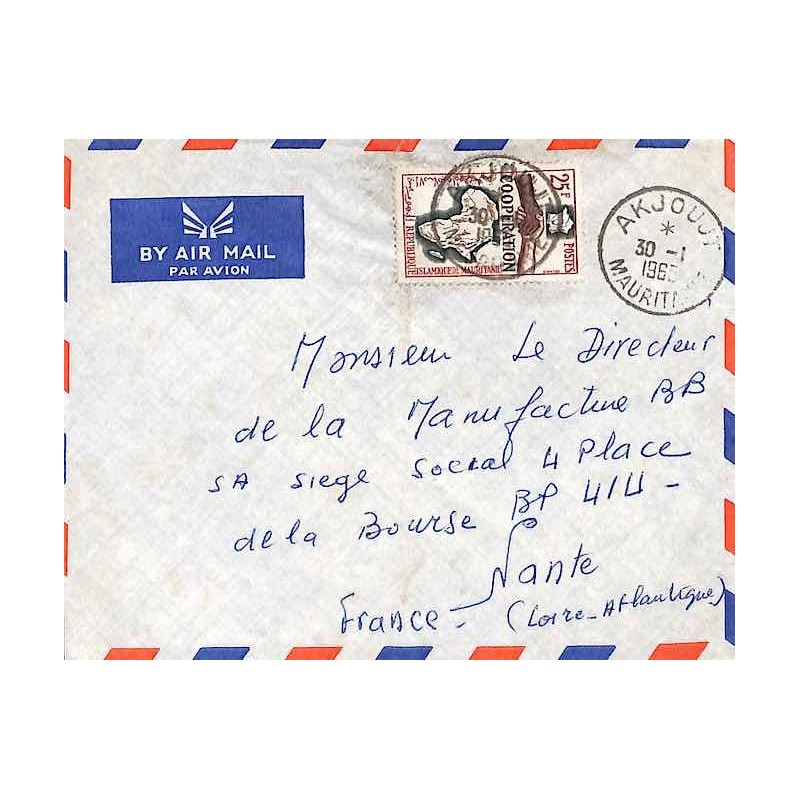 BY AIR MAIL
PAR AVION
25F
POSTES
COOPERATION
REPUBLIQUE ISLAMIQUE DE MAURITANIE
AKJOUJT
30 -1
196
30 -1
AKJOUJT
*
30 -1
1963
MAURITANIE
Monsieur Le Directeur
de la Manufacture BB
SA Siege Social 4 Place
de la Bourse BP 414 -
Nante
France - (Loire-Atlantique)